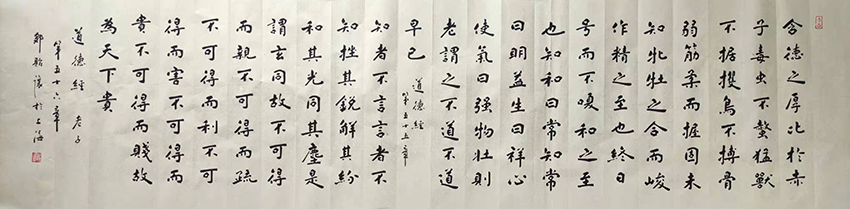 含德之厚比於赤
子毒虫不螫猛獸
不据攫鳥不搏骨
弱筋柔而握固未
知牝牡之合而峻
作精之至也終日
号而不嗄和之至
也知和曰常知常
曰明益生曰祥心
使氣曰强物壯則
老謂之不道不道
早已
道德經
第五十五章
知者不言言者不
知挫其銳解其紛
和其光同其塵是
謂玄同故不可得
而親不可得而疏
不可得而利不可
得而害不可得而
貴不可得而賤故
為天下貴
道德經 老子
第五十六章
於上海